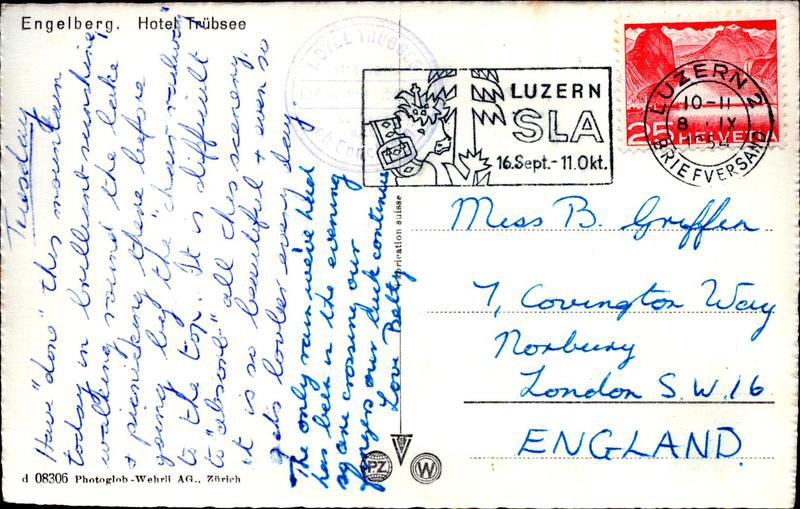 Engelberg. Hotel Trübsee
Tuesday
Have "done" this mountain
today in brilliant sunshine,
walking round the lake
+ picnicking there before
going by the "chair-railway"
to the top. It is difficult
to "absorb" all this scenery,
it is so beautiful + even so
gets lovlier every day.
The only rain we've had
has been in the evening
so are crossing our
fingers our luck continues
Love Betty
HOTEL TRÜBSEE
LUZERN
SLA
16. Sept. - 11. Okt.
25 HELVETIA
LUZERN 2
10-11
8. IX
1954
BRIEFVERSAND
fabrication suisse
Miss B. Griffin
7, Covington Way
Norbury
London S.W.16
ENGLAND
PZ
W
d 08306 Photoglob-Wehrli AG., Zürich